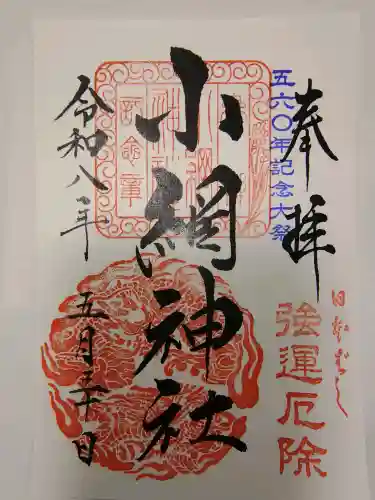 奉拝
五六〇年記念大祭
強運厄除
小網神社
令和八年
五月二十日